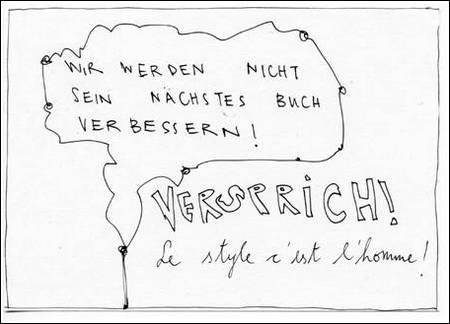 WIR WERDEN NICHT
SEIN NÄCHSTES BUCH
VERBESSERN!
VERSPRICH!
Le style c'est l'homme!